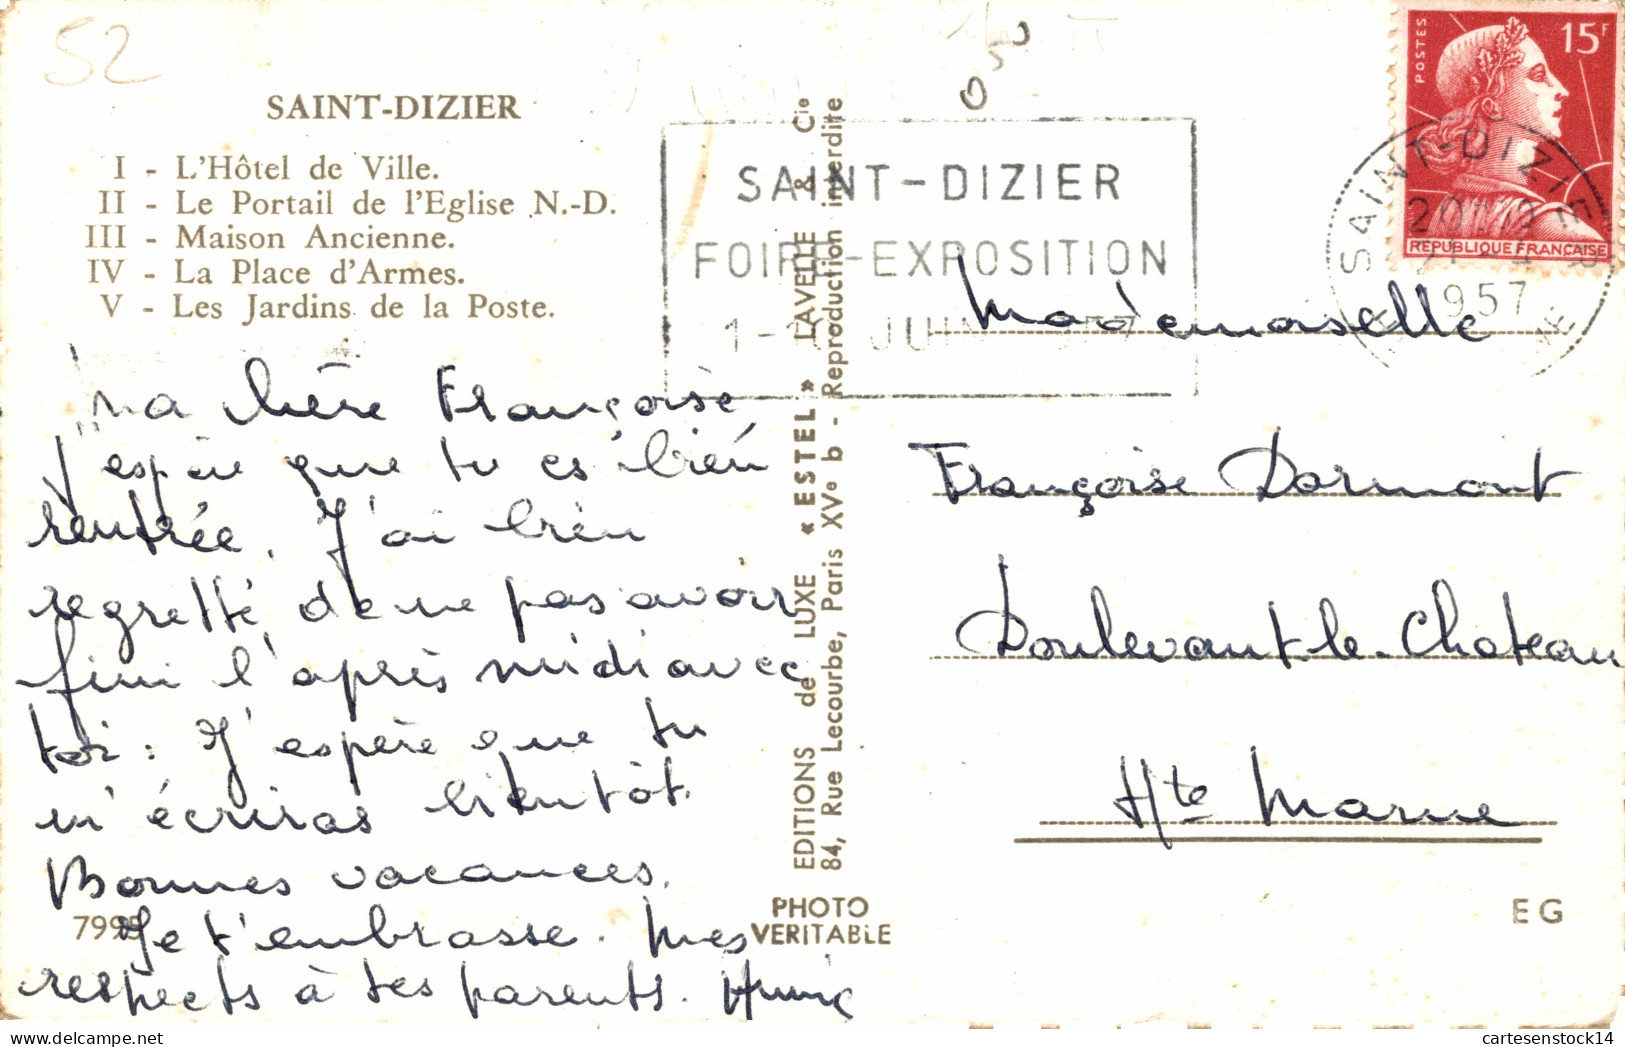 52
SAINT-DIZIER
I - L'Hôtel de Ville.
II - Le Portail de l'Eglise N.-D.
III - Maison Ancienne.
IV - La Place d'Armes.
V - Les Jardins de la Poste.
Ma chère Françoise
J'espère que tu es bien
rentrée. J'ai bien
regretté de ne pas avoir
fini l'après midi avec
toi : J'espère que tu
m'écriras bientôt.
Bonnes vacances.
Je t'embrasse. Mes
respects à tes parents. Annie
7995
EDITIONS de LUXE « ESTEL » LAVELLE & Cie
84, Rue Lecourbe, Paris XVe b - Reproduction interdite
PHOTO
VERITABLE
SAINT-DIZIER
FOIRE-EXPOSITION
JUIN
POSTES
15F
REPUBLIQUE FRANÇAISE
SAINT-DIZIER
1957
Mademoiselle
Françoise Dormont
Doulevant-le-Chateau
Hte Marne
EG
cartesenstock14